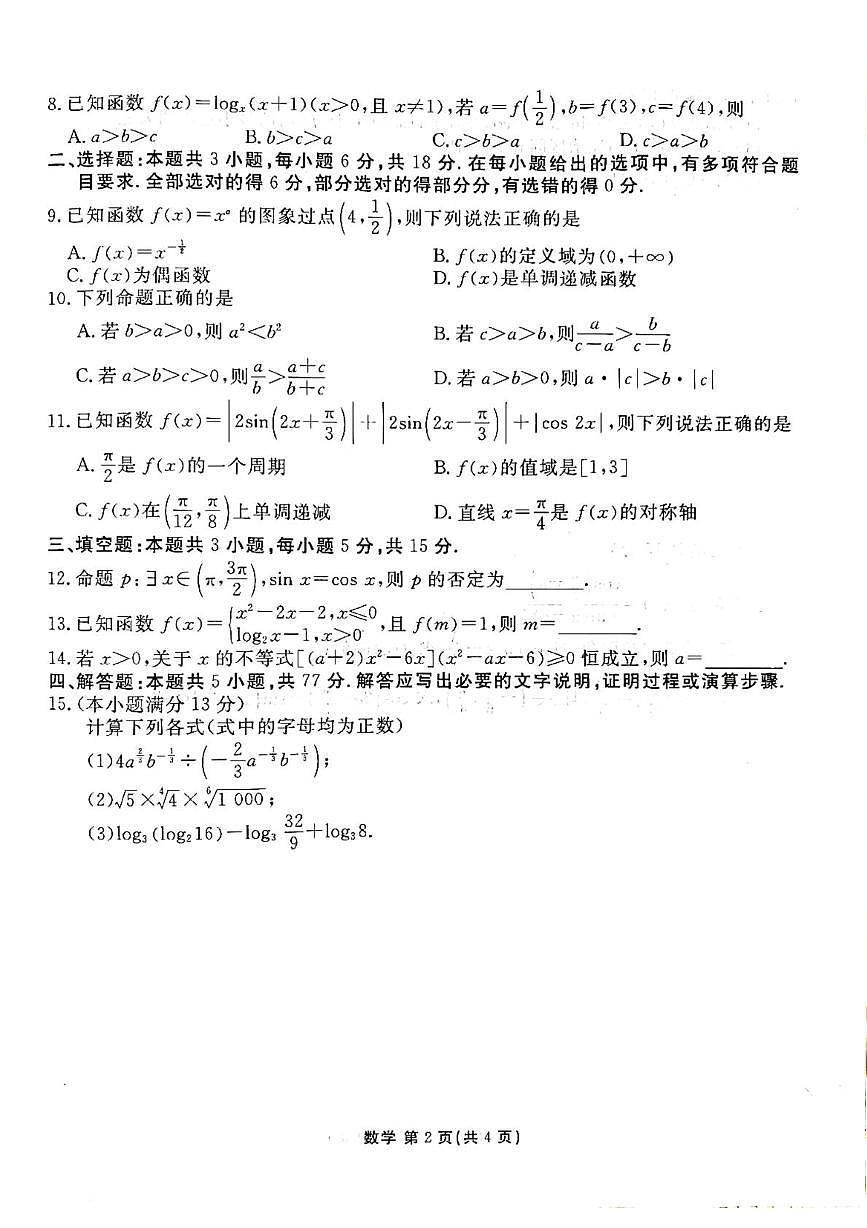 8.已知函数 f(x)=logₓ(x+1)(x>0,且 x≠1),若 a=f(1/2),b=f(3),c=f(4),则
A.a>b>c B.b>c>a C.c>b>a D.c>a>b
二、选择题:本题共 3 小题,每小题 6 分,共 18 分.在每小题给出的选项中,有多项符合题
目要求.全部选对的得 6 分,部分选对的得部分分,有选错的得 0 分.
9.已知函数 f(x)=x^α 的图象过点(4,1/2),则下列说法正确的是
A.f(x)=x^(-1/2) B.f(x)的定义域为(0,+∞)
C.f(x)为偶函数 D.f(x)是单调递减函数
10.下列命题正确的是
A.若 b>a>0,则 a²<b² B.若 c>a>b,则 a/(c-a)>b/(c-b)
C.若 a>b>c>0,则 a/b>(a+c)/(b+c) D.若 a>b>0,则 a·|c|>b·|c|
11.已知函数 f(x)=|2sin(2x+π/3)|+|2sin(2x-π/3)|+|cos 2x|,则下列说法正确的是
A.π/2是 f(x)的一个周期 B.f(x)的值域是[1,3]
C.f(x)在(π/12,π/8)上单调递减 D.直线 x=π/4是 f(x)的对称轴
三、填空题:本题共 3 小题,每小题 5 分,共 15 分.
12.命题 p:∃x∈(π,3π/2),sin x=cos x,则 p 的否定为________.
13.已知函数 f(x)={x²-2x-2,x≤0 log₂x-1,x>0,且 f(m)=1,则 m=________.
14.若 x>0,关于 x 的不等式[(a+2)x²-6x](x²-ax-6)≥0 恒成立,则 a=________.
四、解答题:本题共 5 小题,共 77 分.解答应写出必要的文字说明,证明过程或演算步骤.
15.(本小题满分 13 分)
计算下列各式(式中的字母均为正数)
(1)4a^(2/3)b^(-1/3)÷(-2/3 a^(-1/3)b^(-1/3));
(2)√5×⁴√4×⁶√1 000;
(3)log₃(log₂16)-log₃ 32/9+log₃8.
数学 第 2 页(共 4 页)